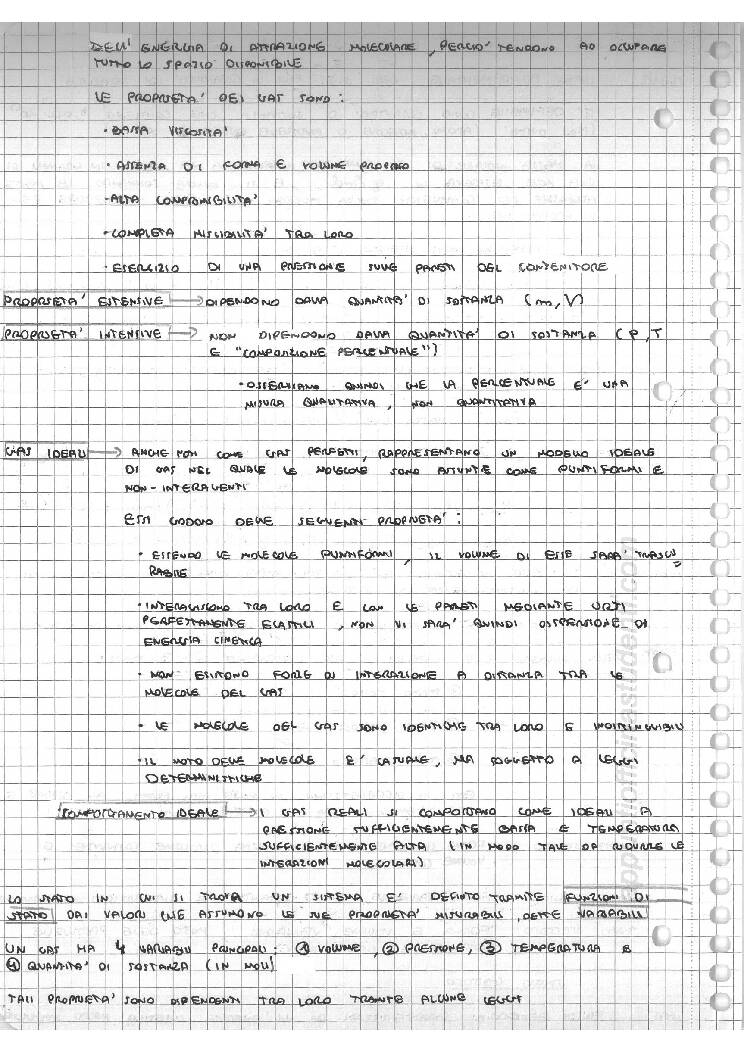 DELL' ENERGIA DI ATTRAZIONE MOLECOLARE, PERCIO' TENDONO AD OCUPARE
TUTTO LO SPAZIO DISPONIBILE
LE PROPRIETA' DEI GAS SONO:
· BASSA VISCOSITA'
· ASSENZA DI FORMA E VOLUME PROPRIO
· ALTA COMPRIMIBILITA'
· COMPLETA MISCIBILITA' TRA LORO
· ESERCIZIO DI UNA PRESSIONE SULLE PARETI DEL CONTENITORE
PROPRIETA' ESTENSIVE → DIPENDONO DALLA QUANTITA' DI SOSTANZA (m, V)
PROPRIETA' INTENSIVE → NON DIPENDONO DALLA QUANTITA' DI SOSTANZA (P, T
E "COMPOSIZIONE PERCENTUALE")
· OSSERVIAMO QUINDI CHE LA PERCENTUALE E' UNA
MISURA QUALITATIVA, NON QUANTITATIVA
GAS IDEALI → ANCHE NOTI COME GAS PERFETTI, RAPPRESENTANO UN MODELLO IDEALE
DI GAS NEL QUALE LE MOLECOLE SONO ASSUNTE COME PUNTIFORMI E
NON-INTERAGENTI
ESSI GODONO DELLE SEGUENTI PROPRIETA':
· ESSENDO LE MOLECOLE PUNTIFORMI, IL VOLUME DI ESSE SARA' TRASCU
RABILE
· INTERAGISCONO TRA LORO E CON LE PARETI MEDIANTE URTI
PERFETTAMENTE ELASTICI, NON VI SARA' QUINDI DISPERSIONE DI
ENERGIA CINETICA
· NON ESISTONO FORZE DI INTERAZIONE A DISTANZA TRA LE
MOLECOLE DEL GAS
· LE MOLECOLE DEL GAS SONO IDENTICHE TRA LORO E INDISTINGUIBILI
· IL MOTO DELLE MOLECOLE E' CASUALE, MA SOGGETTO A LEGGI
DETERMINISTICHE
COMPORTAMENTO IDEALE → I GAS REALI SI COMPORTANO COME IDEALI A
PRESSIONE SUFFICIENTEMENTE BASSA E TEMPERATURA
SUFFICIENTEMENTE ALTA (IN MODO TALE DA RIDURRE LE
INTERAZIONI MOLECOLARI)
LO STATO IN CUI SI TROVA UN SISTEMA E' DEFINITO TRAMITE FUNZIONI DI
STATO DAI VALORI CHE ASSUMONO LE SUE PROPRIETA' MISURABILI, DETTE VARIABILI
UN GAS HA 4 VARIABILI PRINCIPALI: ① VOLUME, ② PRESSIONE, ③ TEMPERATURA E
④ QUANTITA' DI SOSTANZA (IN MOLI)
TALI PROPRIETA' SONO DIPENDENTI TRA LORO TRAMITE ALCUNE LEGGI